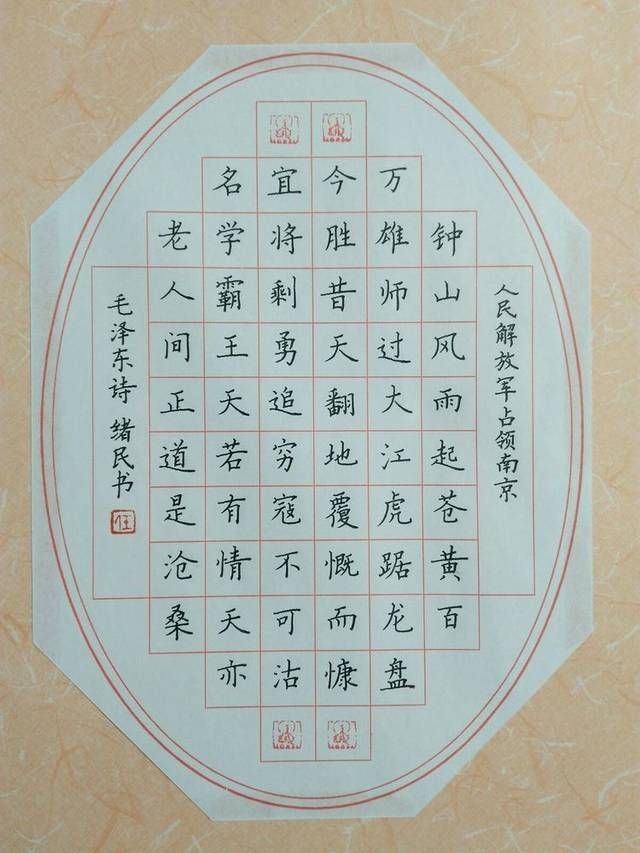 人民解放军占领南京
钟山风雨起苍黄百
万雄师过大江虎踞龙盘
今胜昔天翻地覆慨而慷
宜将剩勇追穷寇不可沽
名学霸王天若有情天亦
老人间正道是沧桑
毛泽东诗 绪民书
任